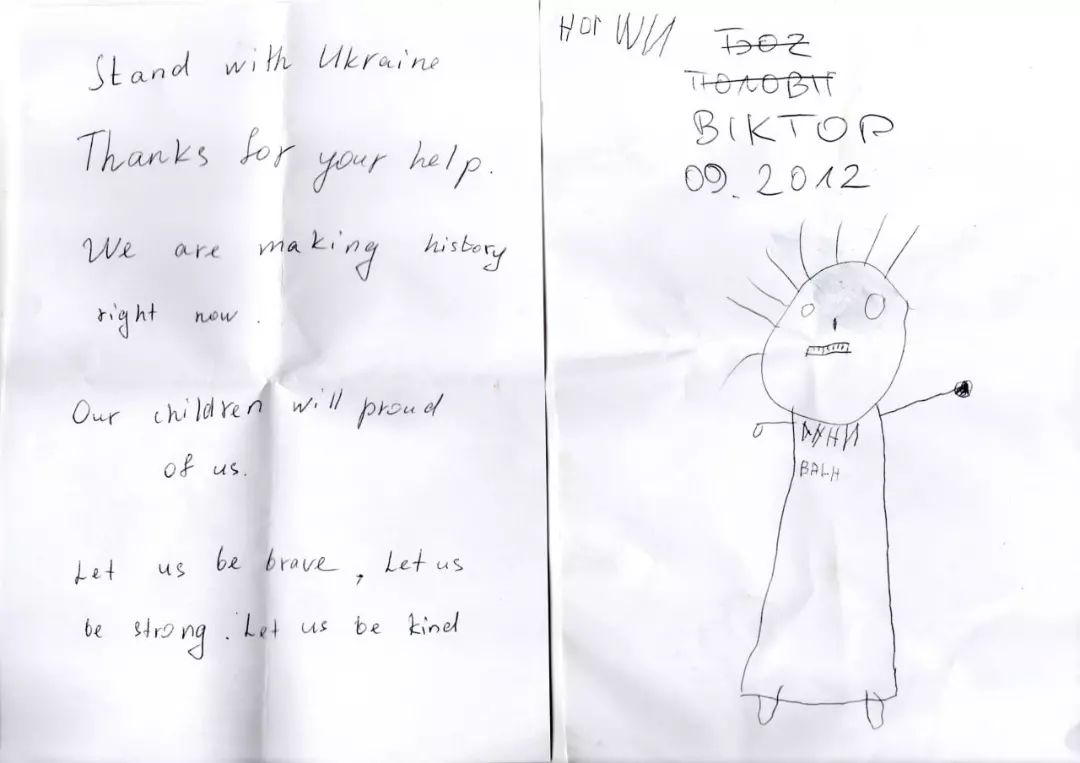 Stand with Ukraine
Thanks for your help.
We are making history
right now.
Our children will proud
of us.
Let us be brave, Let us
be strong. Let us be kind
ВІКТОР
09.2012